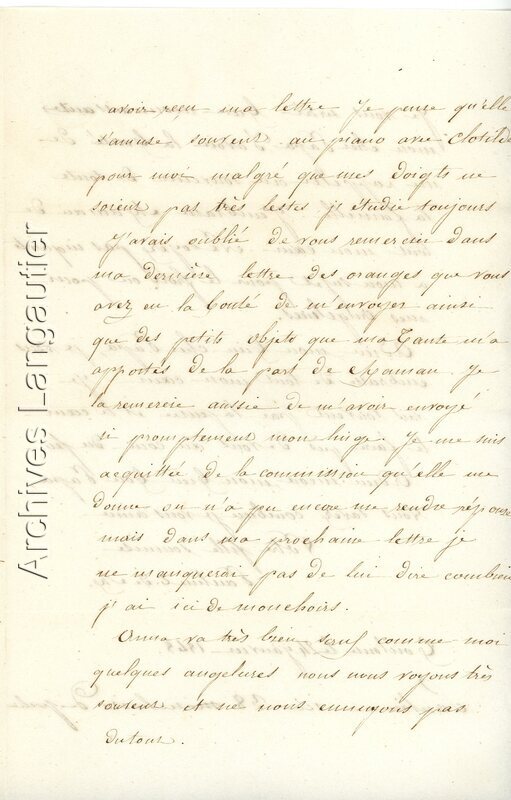 avoir reçu ma lettre Je pense qu'elle
s'amuse souvent au piano avec Clotilde
pour moi malgré que mes doigts ne
soient pas très lestes j'étudie toujours
J'avais oublié de vous remercier dans
ma dernière lettre des oranges que vous
avez eu la bonté de m'envoyer ainsi
que des petits objets que ma Tante m'a
apportés de la part de Maman. Je
la remercie aussie de m'avoir envoyé
si promptement mon linge. Je me suis
acquittée de la commission qu'elle me
donne on n'a pu encore me rendre réponse
mais dans ma prochaine lettre je
ne manquerai pas de lui dire combien
j'ai ici de mouchoirs.
Anna va très bien sauf comme moi
quelques angelures nous nous voyons très
souvent et ne nous ennuyons pas
du tout.
Archives Langautier